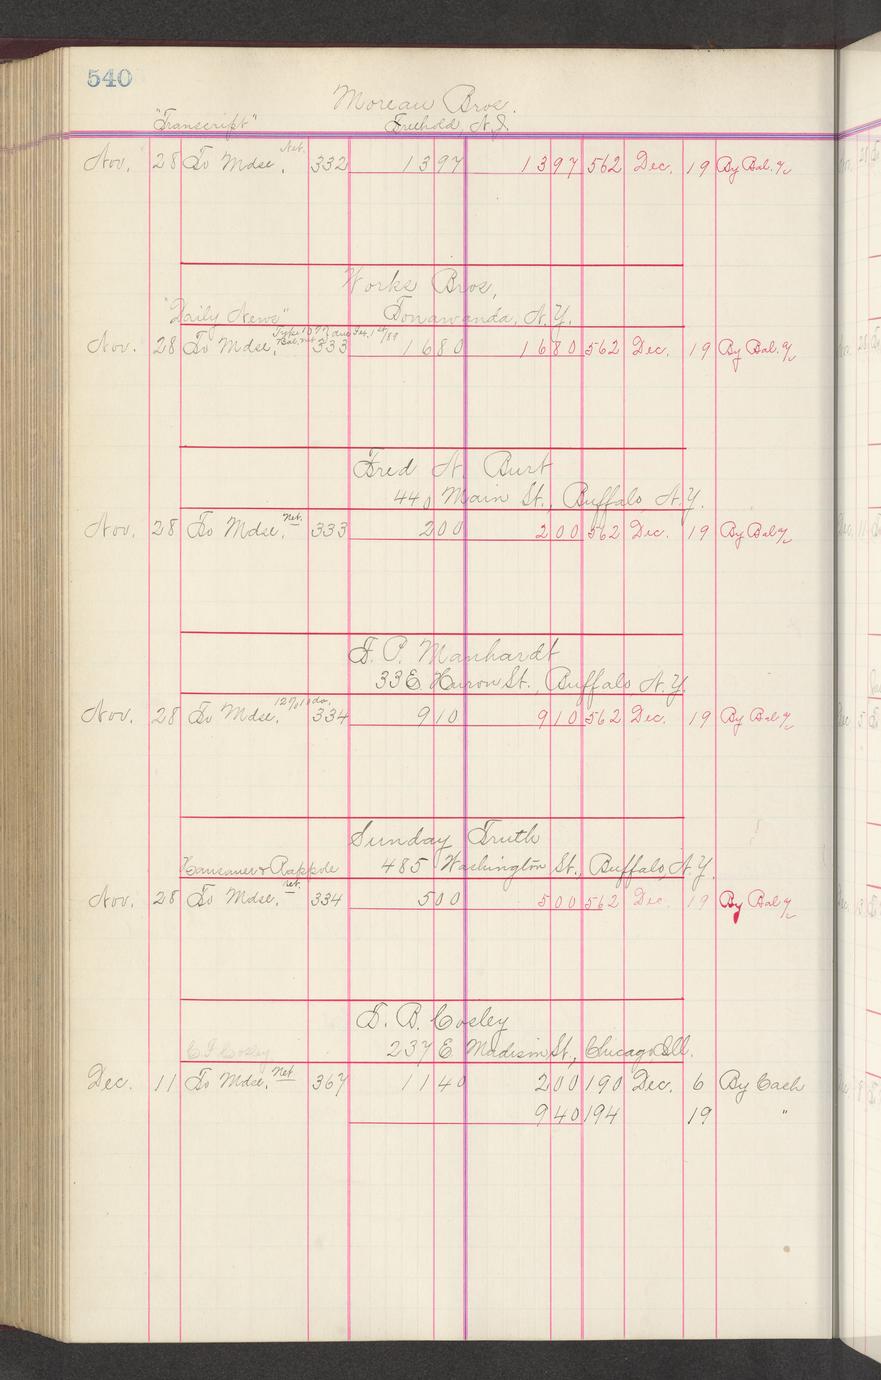 540
Moreau Bros.
"Transcript" Freehold, N.J.
Nov. 28 To Mdse. Net. 332 1397 1397 562 Dec. 19 By Bal. a/c
Works Bros,
"Daily News" Tonawanda, N.Y.
Nov. 28 To Mdse. Bal. net 333 1680 1680 562 Dec. 19 By Bal. a/c
Fred N. Burt
440 Main St., Buffalo, N.Y.
Nov. 28 To Mdse. Net. 333 200 200 562 Dec. 19 By Bal a/c
F. P. Manhardt
33 E. Huron St., Buffalo, N.Y.
Nov. 28 To Mdse. 12% 10 da. 334 910 910 562 Dec. 19 By Bal a/c
Sunday Truth
485 Washington St., Buffalo, N.Y.
Nov. 28 To Mdse. net. 334 500 500 562 Dec. 19 By Bal a/c
F. B. Cosley
C F Cosley 237 E. Madison St., Chicago Ill.
Dec. 11 To Mdse. Net 367 1140 200 190 Dec. 6 By Cash
940 194 19 "